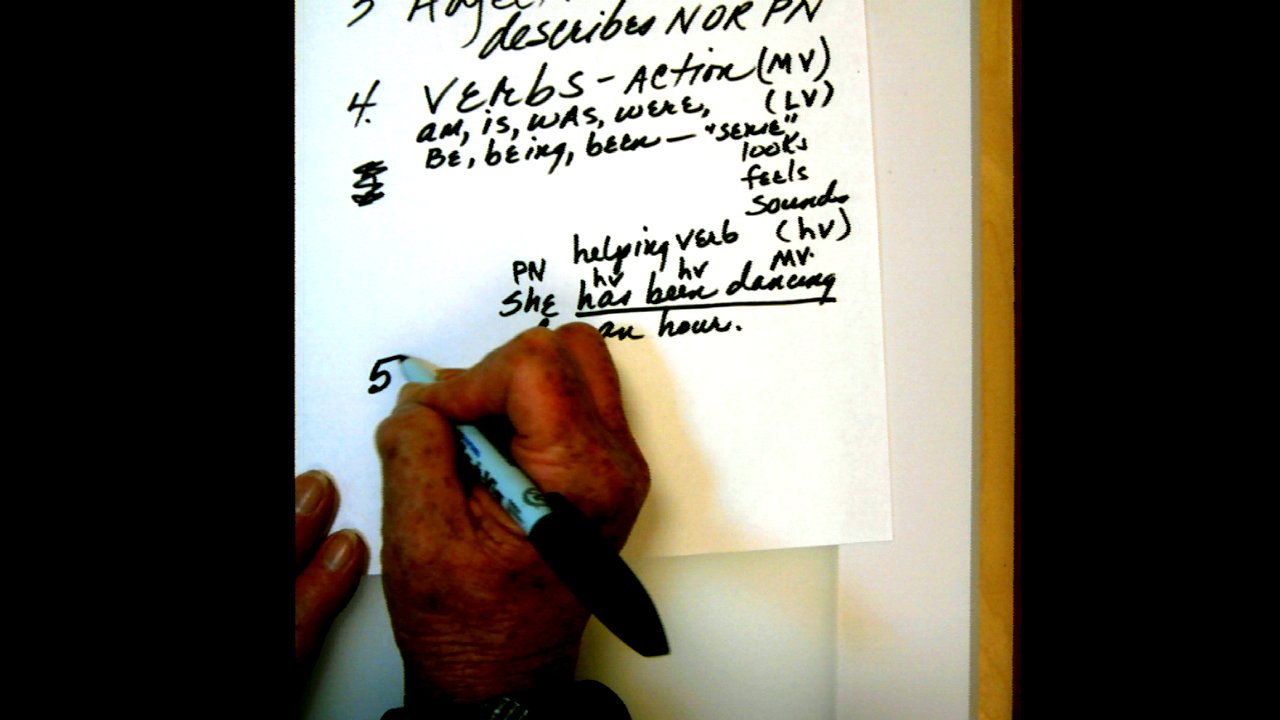 3 Adjec
describes N OR PN
4. VERbS - ACTion (MV)
am, is, wAS, wERE, (LV)
BE, bEing, bEEn - "sEnsE"
looks
fEEls
sounds
helping vErb (hv)
PN hv hv MV.
ShE has bEEn dancing
an hour.
5